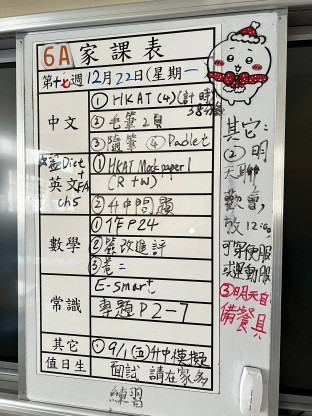 6A 家課表
第十七週 12月22日(星期一
中文
① HKAT (4) (計時
38分鐘
② 毛筆2頁
③ 隨筆 ④ Padlet
Dict
英文
ch5
① HKAT Mock paper 1
(R + W)
② 升中問題
數學
① 作P24
② 簽改進評
③ 卷二
常識
E-smart
專題P2-7
其它
① 9/1(五)升中模擬
值日生
面試 請在家多
練習
其它:
② 明
天聯
歡會,
放12:00,
可穿便服
或運動服
③明天自
備餐具